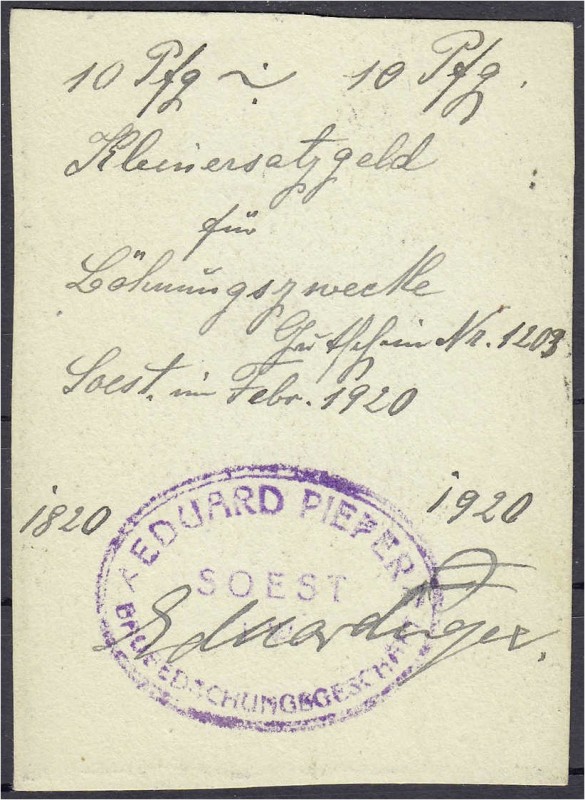 10 Pfg ~ 10 Pfg.
Kleinersatzgeld
für
Löhnungszwecke
Gutschein Nr. 1203
Soest. im Febr. 1920
1820 1920
EDUARD PIEPER
SOEST
Eduard Pieper.